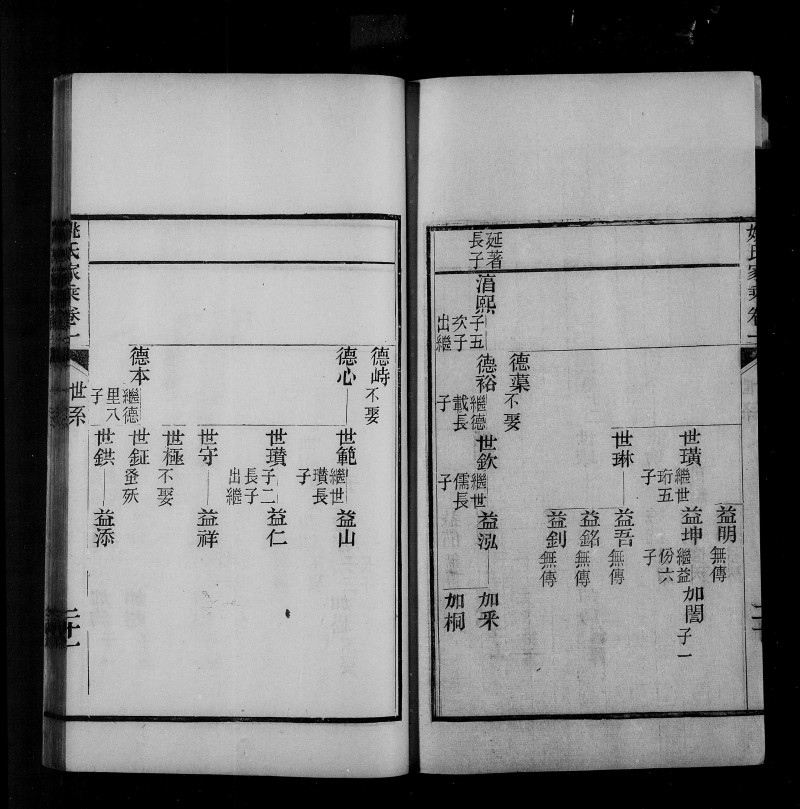 益明 無傳
世璜 繼世珩五子 益坤 繼益份六子 加誾 子一
世琳 益吾 無傳
益銘 無傳
益釗 無傳
德蕖 不娶
延著長子 淯熙 子五 次子出繼 德裕 繼德載長子 世欽 繼世儒長子 益泓 加釆
加桐
德峙 不娶
德心 世範 繼世瓚長子 益山
世瓚 子二 長子出繼 益仁
世守 益祥
世極 不娶
德本 繼德里八子 世鉦 蚤殀
世鉷 益添
姚氏家乘卷一 世系 二十一